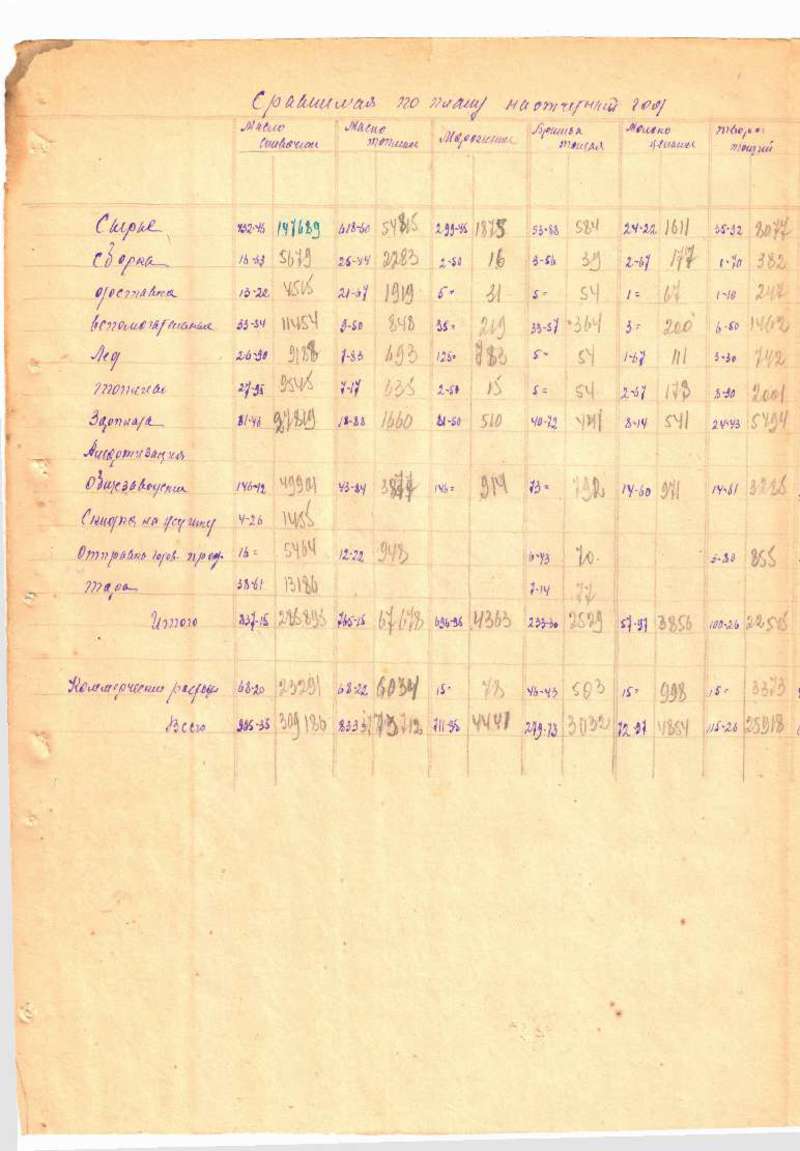 Сравнимая по плану на отчетный год
Масло сливочное Масло топленое Мороженое Брынза тощая Молоко цельное Творог тощий
Сырье 432-45 147689 618-60 54815 299-45 1875 53-88 584 24-22 1611 35-92 8077
Сборка 16-63 5679 25-44 2283 2-50 16 3-56 39 2-67 177 1-70 382
доставка 13-22 4515 21-67 1919 5= 31 5= 54 1= 67 1-10 247
вспомогательные 33-54 11454 9-50 848 35= 219 33-57 364 3= 200 6-50 1462
Лед 26-90 9188 7-83 693 125= 783 5= 54 1-67 111 3-30 742
топливо 27-95 9545 7-17 635 2-50 15 5= 54 2-67 173 8-90 2001
Зарплата 81-46 27819 18-88 1660 81-50 510 40-72 441 8-14 541 24-43 5494
Амортизация
Общезаводские 146-12 49901 43-84 3877 146= 914 73= 792 14-60 971 14-61 3285
Скидка на усушку 4-26 1455
Отправка готов. прод. 16= 5464 12-22 948 6-43 70 3-80 855
тара 38-61 13186 7-14 77
Итого 837-15 285895 765-15 67678 696-95 4363 233-30 2529 57-97 3856 100-26 22545
Коммерческие расходы 68-20 23291 68-22 6034 15= 78 46-43 503 15= 998 15= 3373
Всего 905-35 309186 833-37 73712 711-95 4441 279-73 3032 72-97 4854 115-26 25918